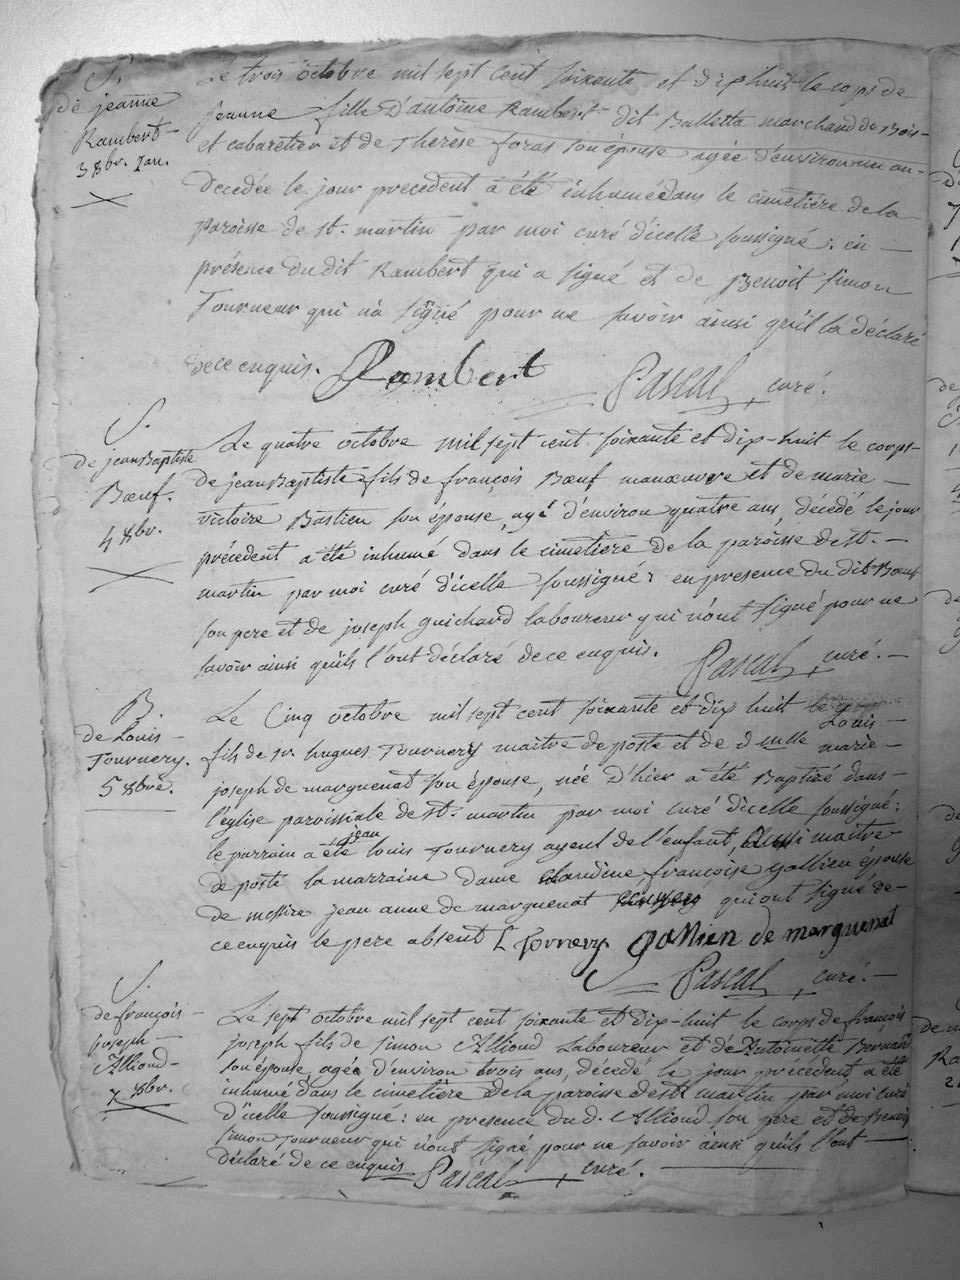 S.
de jeanne
Rambert
3 8br. 1 an.
Le trois octobre mil sept cent soixante et dix huit le corps de
jeanne fille d'antoine Rambert dit Balletta marchand de Bois
et cabaretier et de Therèse foras son épouse agée d'environ un an
decedée le jour precedent a été inhumé dans le cimetiere de la
paroisse de st. martin par moi curé d'icelle soussigné: en
présence du dit Rambert qui a signé et de Benoit Simon
Tourneur qui n'a signé pour ne savoir ainsi qu'il l'a déclaré
de ce enquis. Rambert Pascal curé.
S.
de jean Baptiste
Bœuf.
4 8br.
Le quatre octobre mil sept cent soixante et dix-huit le corps
de jean Baptiste fils de françois Bœuf manœuvre et de marie
victoire Bastien son épouse, agé d'environ quatre ans, décédé le jour
précédent a été inhumé dans le cimetiere de la paroisse de st.
martin par moi curé d'icelle soussigné: en presence du dit Bœuf
son pere et de joseph guichard laboureur qui n'ont signé pour ne
savoir ainsi qu'ils l'ont déclaré de ce enquis. Pascal curé.
B.
de Louis
Tournery.
5 8bre.
Le Cinq octobre mil sept cent soixante et dix huit Louis
fils de sr. hugues Tournery maitre de poste et de d elle marie
joseph de marguenat son épouse, née d'hier a été Baptizé dans
l'église paroissiale de st. martin par moi curé d'icelle soussigné:
le parrain a été jean louis Tournery ayeul de l'enfant, aussi maitre
de poste la marraine dame claudine françoise gallien épouse
de messire jean anne de marguenat qui ont signé de
ce enquis le pere absent L Tornery Gallien de marguenat
Pascal curé.
S.
de françois
joseph
Alliond
7 8br.
Le sept octobre mil sept cent soixante et dix-huit le corps de francois
joseph fils de simon Alliond Laboureur et de Antoinette Bernard
son épouse, agée d'environ trois ans, décédé le jour precedent a été
inhumé dans le cimetiere de la paroisse de st martin par moi curé
d'icelle soussigné: en presence du d. Alliond son pere et de Benoit
simon Tourneur qui n'ont signé pour ne savoir ainsi qu'ils l'ont
déclaré de ce enquis Pascal curé.